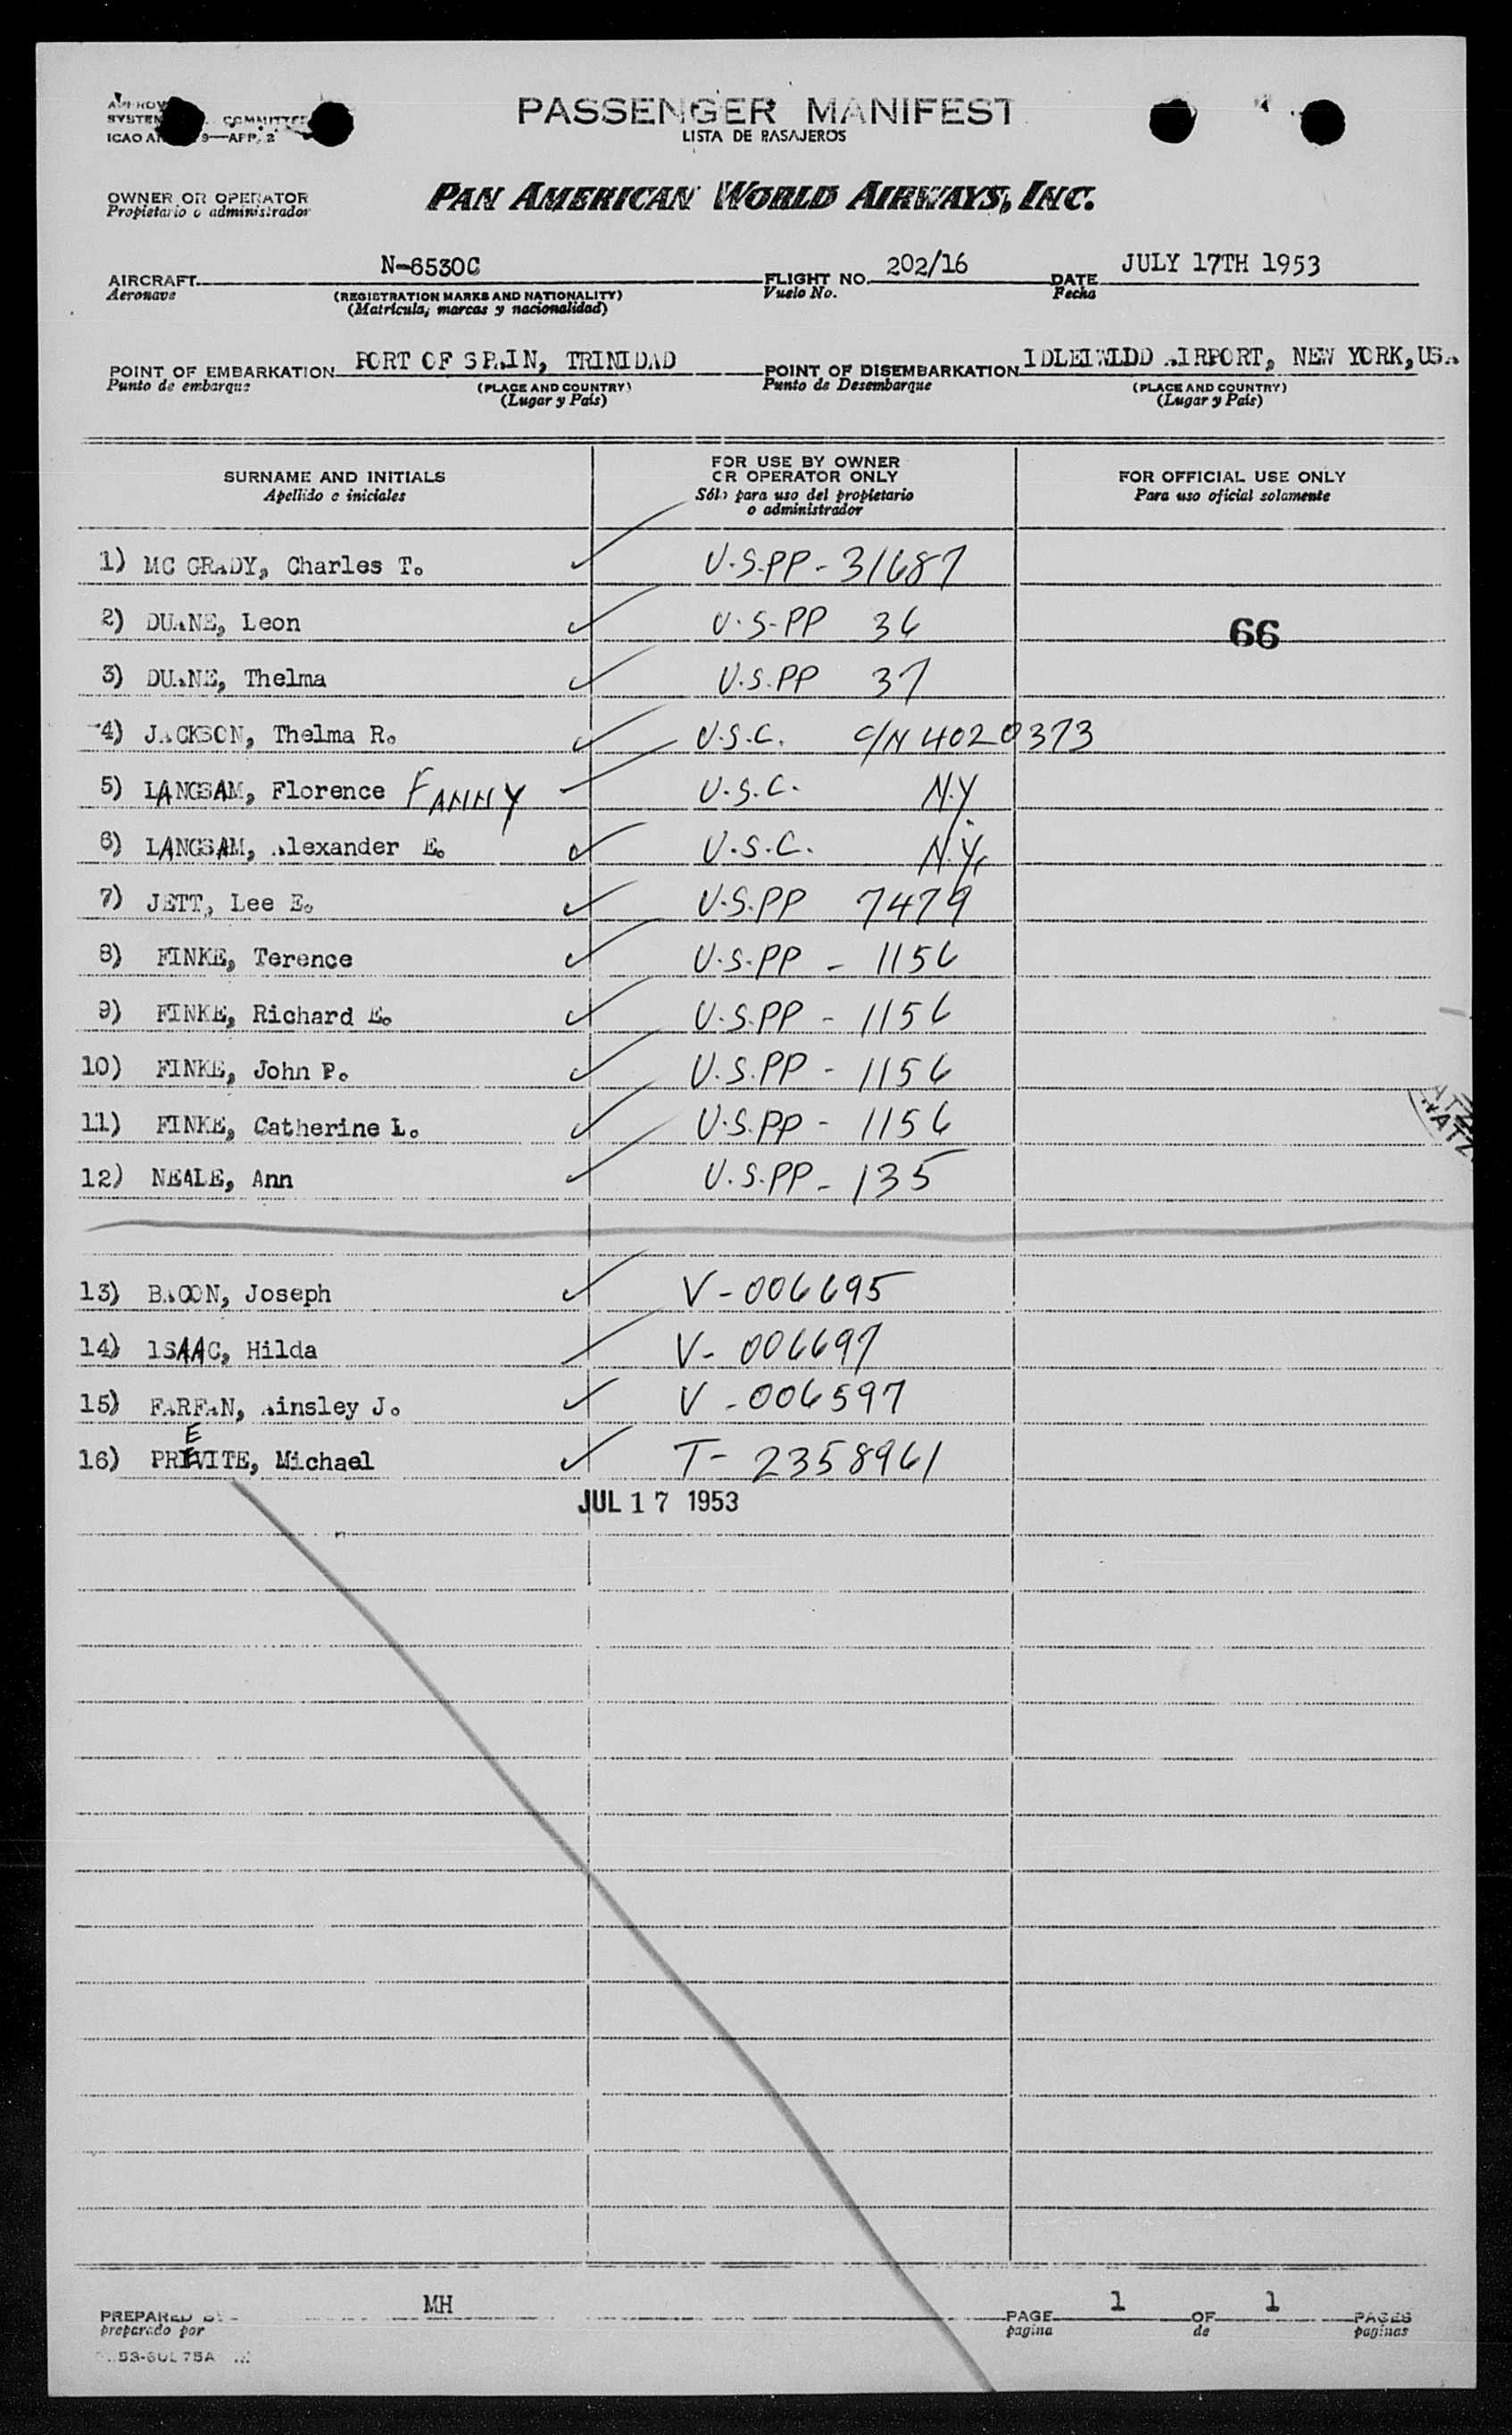 PASSENGER MANIFEST
LISTA DE PASAJEROS
ICAO 9—APP. 2
OWNER OR OPERATOR
Propietario o administrador
PAN AMERICAN WORLD AIRWAYS, INC.
AIRCRAFT N-6530C FLIGHT NO. 202/16 DATE JULY 17TH 1953
Aeronave (REGISTRATION MARKS AND NATIONALITY) Vuelo No. Fecha
(Matrícula, marcas y nacionalidad)
POINT OF EMBARKATION PORT OF SPAIN, TRINIDAD POINT OF DISEMBARKATION IDLEIWLDD AIRPORT, NEW YORK, USA
Punto de embarque (PLACE AND COUNTRY) Punto de Desembarque (PLACE AND COUNTRY)
(Lugar y País) (Lugar y País)
SURNAME AND INITIALS FOR USE BY OWNER OR OPERATOR ONLY FOR OFFICIAL USE ONLY
Apellido e iniciales Sólo para uso del propietario o administrador Para uso oficial solamente
1) MC GRADY, Charles T. U.S.PP - 31687
2) DUANE, Leon U.S-PP 36 66
3) DUANE, Thelma U.S.PP 37
4) JACKSON, Thelma R. U.S.C. C/N 4020373
5) LANGSAM, Florence FANNY U.S.C. N.Y.
6) LANGSAM, Alexander E. U.S.C. N.Y.
7) JETT, Lee E. U.S.PP 7479
8) FINKE, Terence U.S.PP - 1156
9) FINKE, Richard E. U.S.PP - 1156
10) FINKE, John P. U.S.PP - 1156
11) FINKE, Catherine L. U.S.PP - 1156
12) NEALE, Ann U.S.PP - 135
13) BACON, Joseph V - 006695
14) ISAAC, Hilda V - 006697
15) FARFAN, Ainsley J. V - 006597
E
16) PREVITE, Michael T - 2358961
JUL 17 1953
PREPARED BY MH PAGE 1 OF 1 PAGES
preparado por pagina de paginas